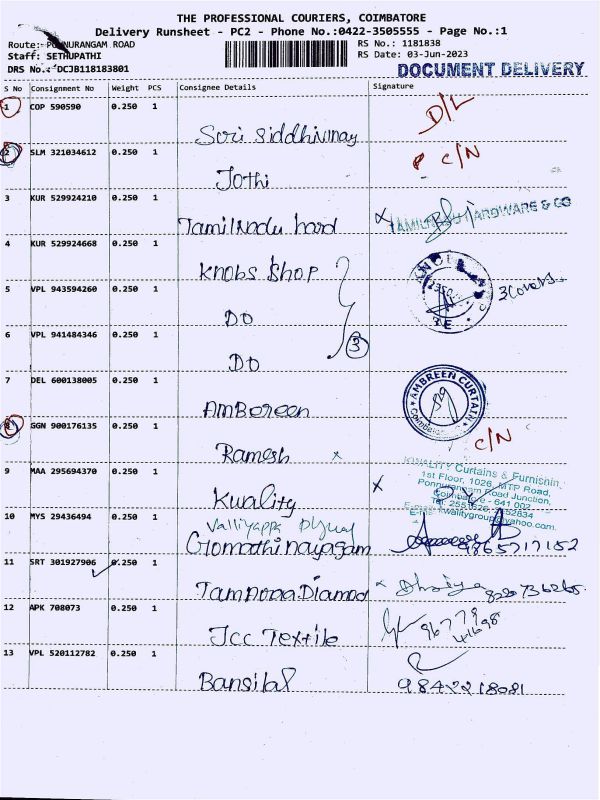 THE PROFESSIONAL COURIERS, COIMBATORE
Delivery Runsheet - PC2 - Phone No.:0422-3505555 - Page No.:1
Route:- PONNURANGAM ROAD RS No.: 1181838
Staff: SETHUPATHI RS Date: 03-Jun-2023
DRS No.: DCJB118183801 DOCUMENT DELIVERY
S No Consignment No Weight PCS Consignee Details Signature
1 COP 590590 0.250 1 D/L
Sori Siddhivinay
2 SLM 321034612 0.250 1 C/N
Jothi
3 KUR 529924210 0.250 1
Tamilnadu hard HARDWARE & CO
4 KUR 529924668 0.250 1
Knobs Shop
5 VPL 943594260 0.250 1 3 Covers
DO
6 VPL 941484346 0.250 1 3
DO
7 DEL 600138005 0.250 1
AmBereen AMBREEN CURTAIN
8 GGN 900176135 0.250 1 C/N
Ramesh x
9 MAA 295694370 0.250 1 x
KWALITY Curtains & Furnishin
1st Floor, 1026, MTP Road,
Ponnurangam Road Junction,
Coimbatore - 641 002
Kwality
10 MYS 29436494 0.250 1
Valliyappa
Gomathinayagam 9865717152
11 SRT 301927906 0.250 1
Tampora Diamod x
12 APK 708073 0.250 1
Jcc Textile
13 VPL 520112782 0.250 1
Bansilal 9842218081